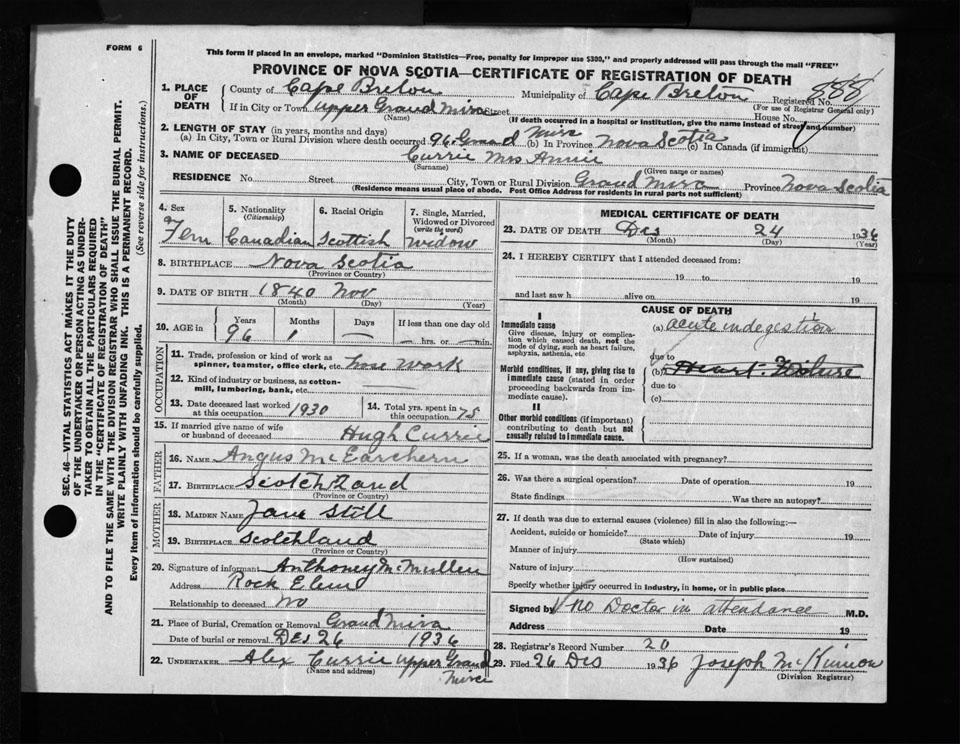 FORM 6
This form if placed in an envelope, marked "Dominion Statistics—Free, penalty for improper use $300," and properly addressed will pass through the mail "FREE"
PROVINCE OF NOVA SCOTIA—CERTIFICATE OF REGISTRATION OF DEATH
1. PLACE OF DEATH
County of Cape Breton Municipality of Cape Breton Registered No. 888
(For use of Registrar General only)
If in City or Town Upper Grand Mira Street House No.
(Name) (If death occurred in a hospital or institution, give the name instead of street and number)
2. LENGTH OF STAY (in years, months and days)
(a) In City, Town or Rural Division where death occurred 96 Grand Mira (b) In Province Nova Scotia (c) In Canada (if immigrant)
3. NAME OF DECEASED Currie Mrs Annie
(Surname) (Given name or names)
RESIDENCE No. Street City, Town or Rural Division Grand Mira Province Nova Scotia
(Residence means usual place of abode. Post Office Address for residents in rural parts not sufficient)
4. Sex Fem
5. Nationality (Citizenship) Canadian
6. Racial Origin Scottish
7. Single, Married, Widowed or Divorced (write the word) Widow
8. BIRTHPLACE Nova Scotia
(Province or Country)
9. DATE OF BIRTH 1840 Nov
(Month) (Day) (Year)
10. AGE in Years 96 Months 1 Days — If less than one day old — hrs. or — min.
OCCUPATION
11. Trade, profession or kind of work as spinner, teamster, office clerk, etc. work
12. Kind of industry or business, as cotton-mill, lumbering, bank, etc. —
13. Date deceased last worked at this occupation 1930
14. Total yrs. spent in this occupation 75
15. If married give name of wife or husband of deceased Hugh Currie
FATHER
16. NAME Angus McEarchern
17. BIRTHPLACE Scotchland
(Province or Country)
MOTHER
18. MAIDEN NAME Jane Still
19. BIRTHPLACE Scotchland
(Province or Country)
20. Signature of informant Anthoney McMullen
Address Rock Elem
Relationship to deceased No
21. Place of Burial, Cremation or Removal Grand Mira
Date of burial or removal Des 26 1936
22. UNDERTAKER Alex Currie Upper Grand Mira
(Name and address)
MEDICAL CERTIFICATE OF DEATH
23. DATE OF DEATH Des 24 1936
(Month) (Day) (Year)
24. I HEREBY CERTIFY that I attended deceased from:
19 to 19
and last saw h alive on 19
CAUSE OF DEATH
I
Immediate cause
Give disease, injury or complication which caused death, not the mode of dying, such as heart failure, asphyxia, asthenia, etc
(a) acute indegestion
due to
Morbid conditions, if any, giving rise to immediate cause (stated in order proceeding backwards from immediate cause).
(b) Heart Failure
due to
(c)
II
Other morbid conditions (if important) contributing to death but not causally related to immediate cause.
25. If a woman, was the death associated with pregnancy?
26. Was there a surgical operation? Date of operation 19
State findings Was there an autopsy?
27. If death was due to external causes (violence) fill in also the following:—
Accident, suicide or homicide? Date of injury 19
(State which)
Manner of injury
(How sustained)
Nature of injury
Specify whether injury occurred in industry, in home, or in public place
Signed by No Doctor in attendance M.D.
Address Date 19
28. Registrar's Record Number 20
29. Filed 26 Des 1936 Joseph McKinnon
(Division Registrar)
SEC. 46—VITAL STATISTICS ACT MAKES IT THE DUTY
OF THE UNDERTAKER OR PERSON ACTING AS UNDER-
TAKER TO OBTAIN ALL THE PARTICULARS REQUIRED
IN THE "CERTIFICATE OF REGISTRATION OF DEATH"
AND TO FILE THE SAME WITH THE DIVISION REGISTRAR WHO SHALL ISSUE THE BURIAL PERMIT.
WRITE PLAINLY WITH UNFADING INK. THIS IS A PERMANENT RECORD.
Every item of information should be carefully supplied. (See reverse side for instructions.)